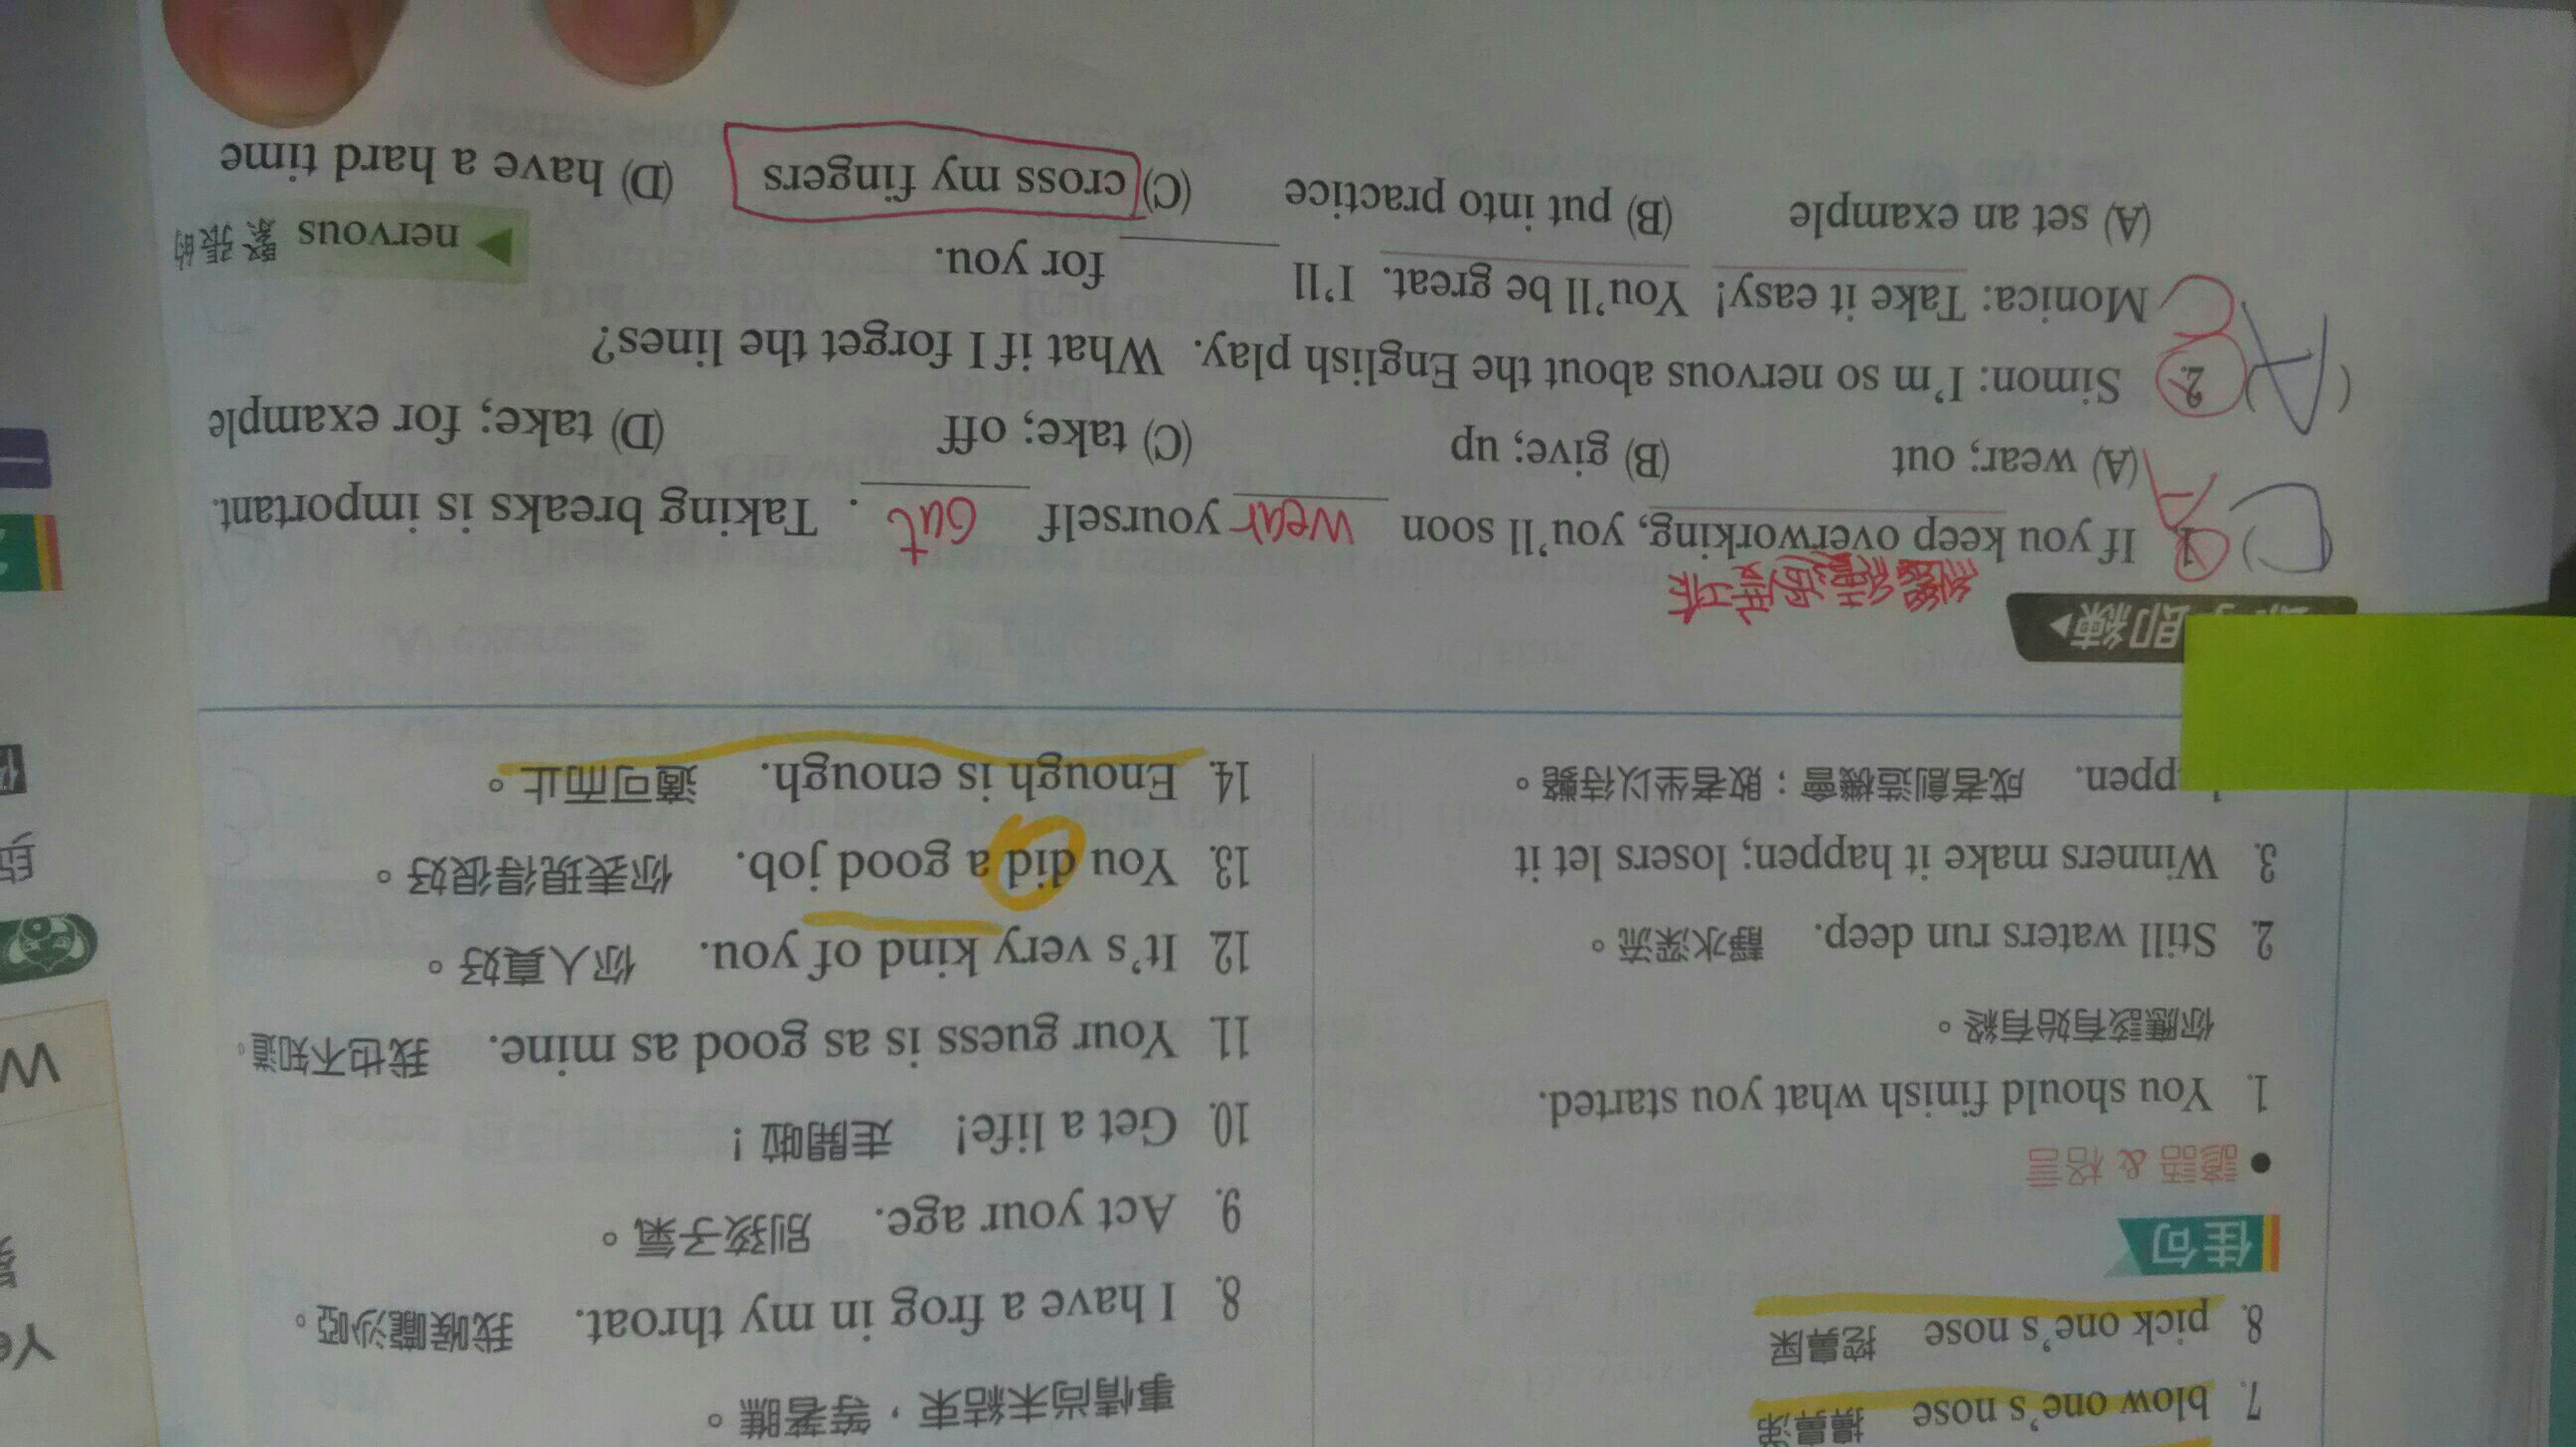 7. blow one's nose 擤鼻涕
8. pick one's nose 挖鼻屎
佳句
• 諺語 & 格言
1. You should finish what you started.
你應該有始有終。
2. Still waters run deep. 靜水深流。
3. Winners make it happen; losers let it
ppen. 成者創造機會；敗者坐以待斃。
事情尚未結束，等著瞧。
8. I have a frog in my throat. 我喉嚨沙啞。
9. Act your age. 別孩子氣。
10. Get a life! 走開啦！
11. Your guess is as good as mine. 我也不知道。
12. It's very kind of you. 你人真好。
13. You did a good job. 你表現得很好。
14. Enough is enough. 適可而止。
即練▶
工作
1. If you keep overworking, you'll soon wear yourself out. Taking breaks is important.
A
(A) wear; out (B) give; up (C) take; off (D) take; for example
(A) 2. Simon: I'm so nervous about the English play. What if I forget the lines?
C Monica: Take it easy! You'll be great. I'll ______ for you.
▶ nervous 緊張的
(A) set an example (B) put into practice (C) cross my fingers (D) have a hard time
Ye
W